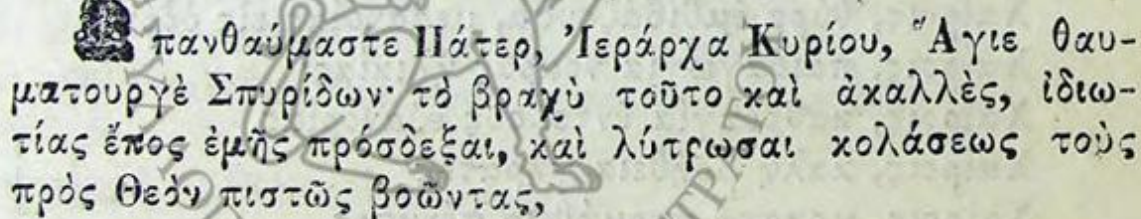 Ὦ πανθαύμαστε Πάτερ, Ἱεράρχα Κυρίου, Ἅγιε θαυ-
ματουργὲ Σπυρίδων· τὸ βραχὺ τοῦτο καὶ ἀκαλλὲς, ἰδιω-
τίας ἔπος ἐμῆς πρόσδεξαι, καὶ λύτρωσαι κολάσεως τοὺς
πρὸς Θεὸν πιστῶς βοῶντας,